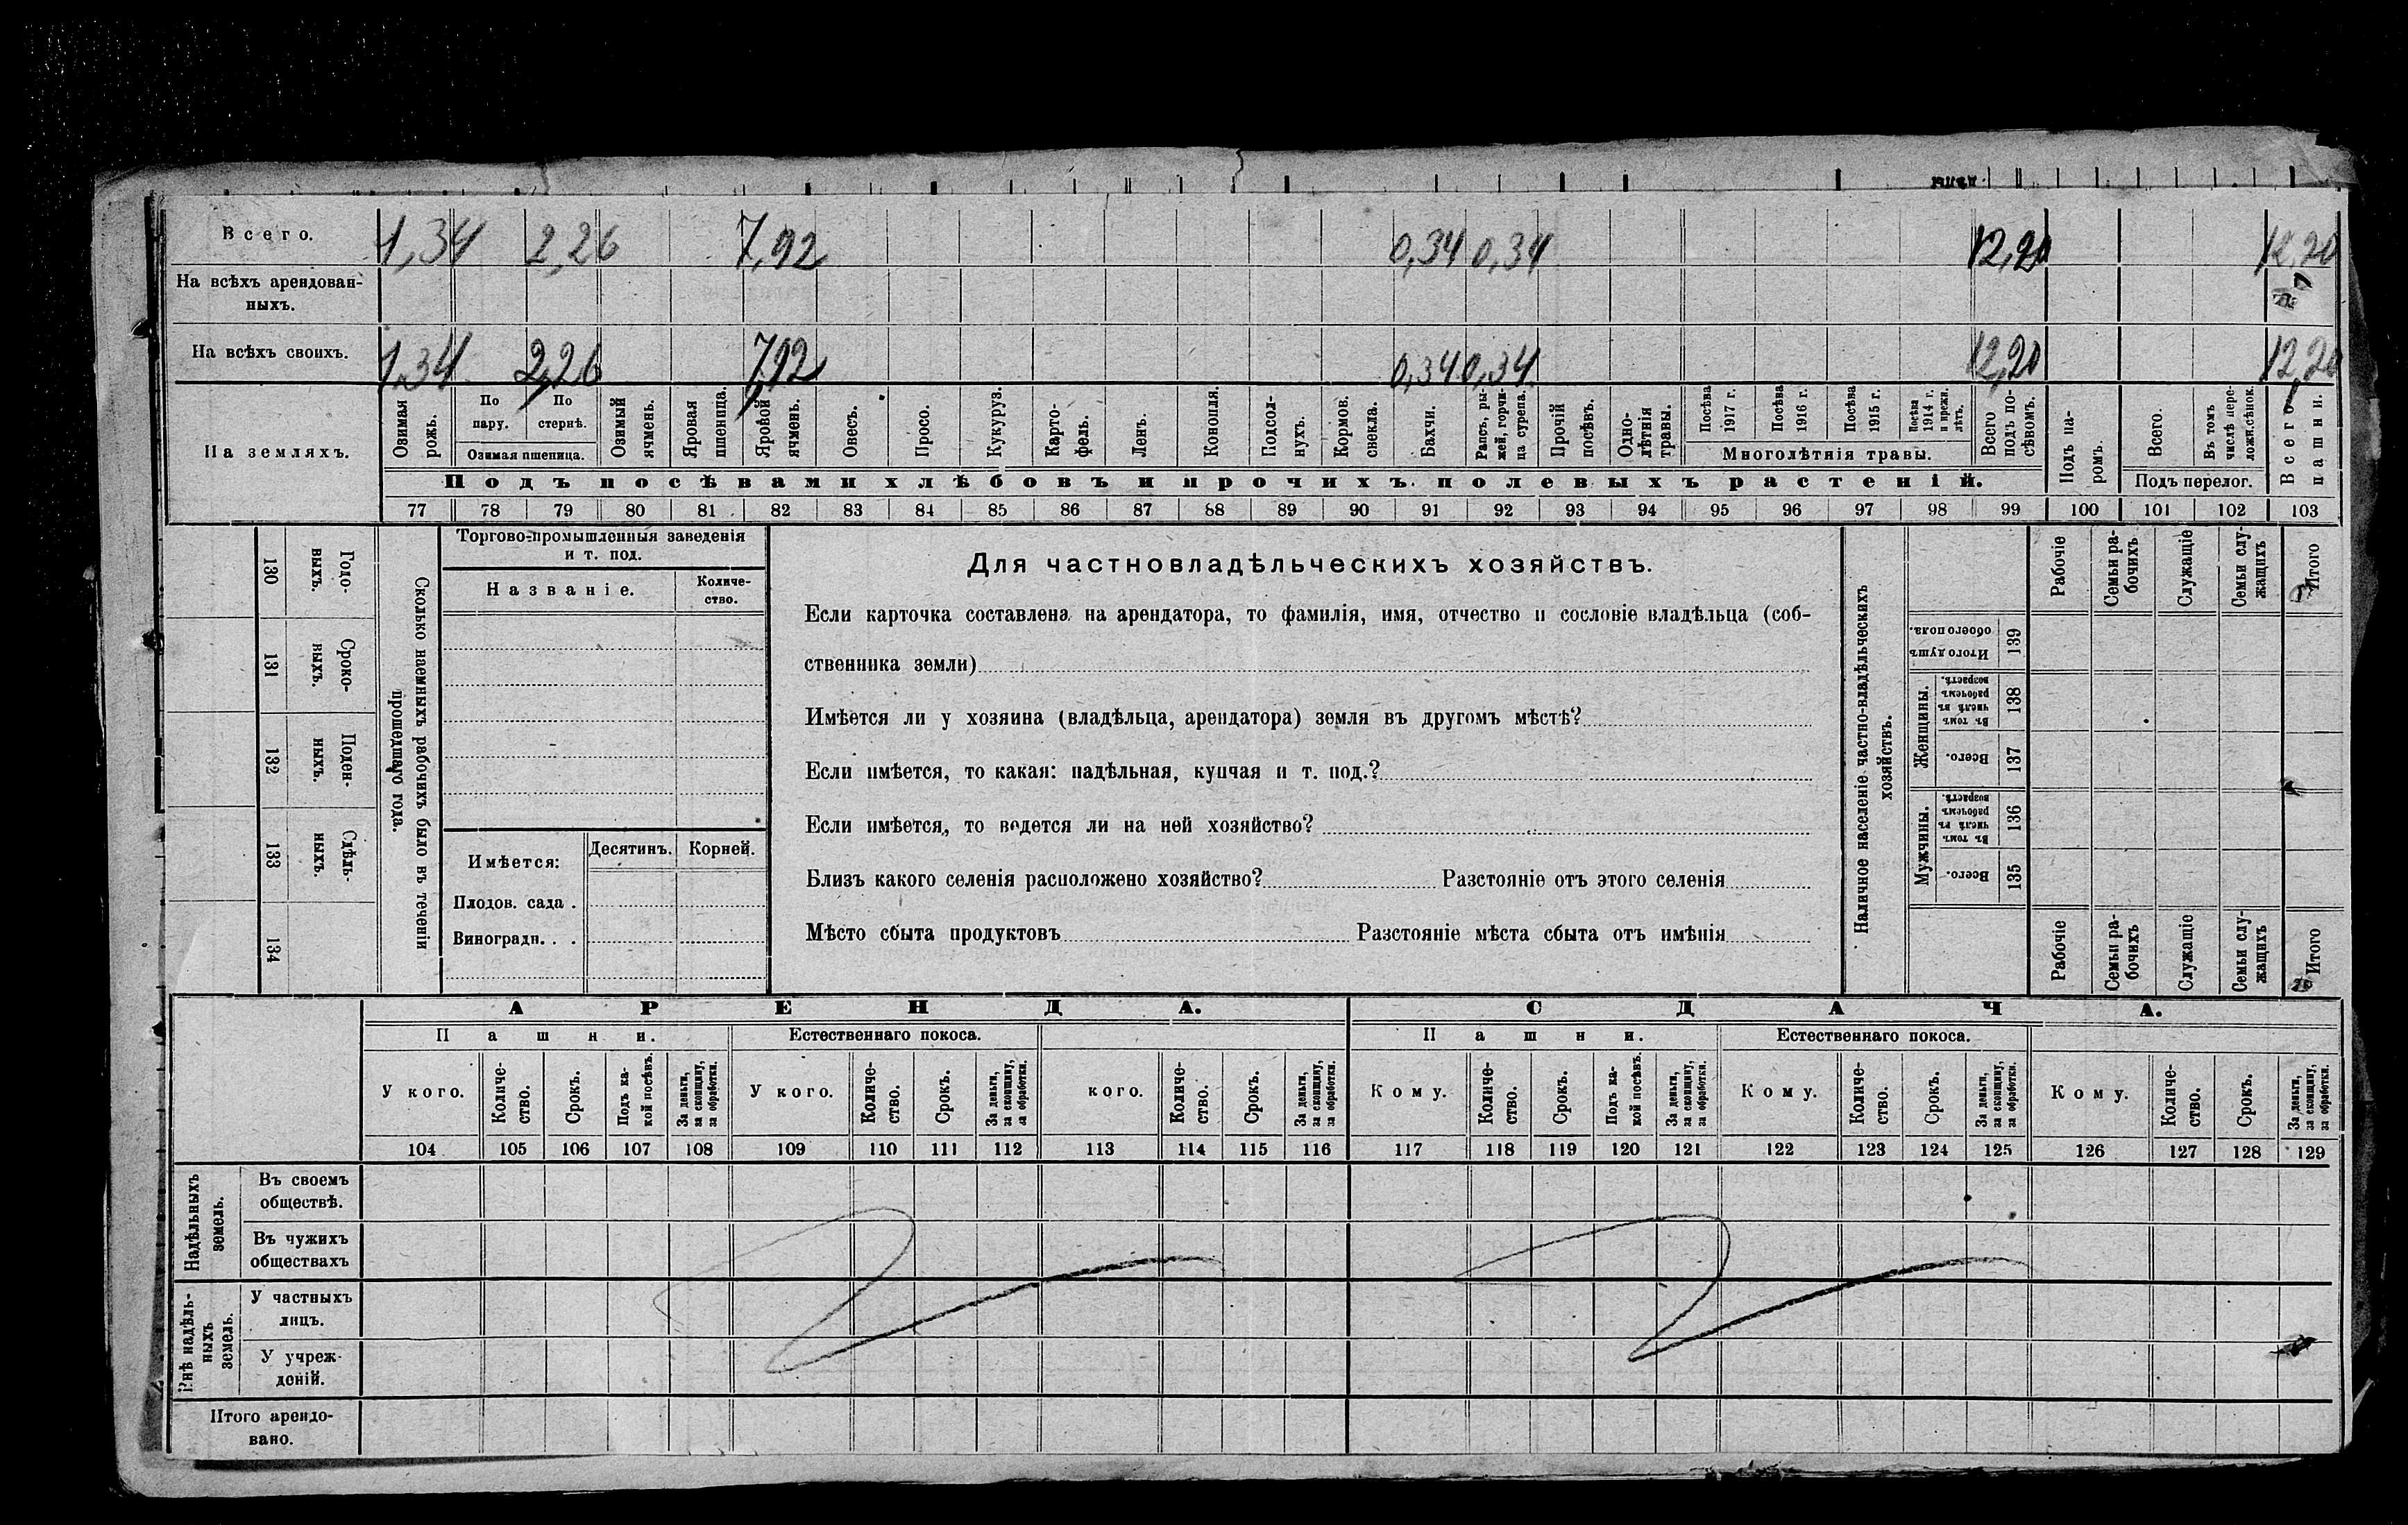 Всего. 1,34 2,26 7,92 0,34 0,34 12,20 12,20
На всѣхъ арендован-
ныхъ.
На всѣхъ своихъ. 1,34 2,26 7,92 0,34 0,34 12,20 12,20
На земляхъ.
Озимая рожь.
По пару.
По стернѣ.
Озимая пшеница.
Озимый ячмень.
Яровая пшеница.
Яровой ячмень.
Овесъ.
Просо.
Кукуруз.
Карто-
фель.
Ленъ.
Конопля.
Подсол-
нухъ.
Кормов. свекла.
Бахчи.
Рапсъ, ры-
жей, горчи-
ца сурепа.
Прочій посѣвъ.
Одно-
лѣтнія травы.
Посѣва 1917 г.
Посѣва 1916 г.
Посѣва 1915 г.
Посѣва 1914 г. и прежн. лѣтъ.
Многолѣтнія травы.
Всего подъ по-
сѣвомъ.
Подъ па-
ромъ.
Всего.
Въ томъ числѣ пере-
ложн. сѣнок.
Подъ перелог.
Всего пашни.
Подъ посѣвами хлѣбовъ и прочихъ полевыхъ растеній.
77 78 79 80 81 82 83 84 85 86 87 88 89 90 91 92 93 94 95 96 97 98 99 100 101 102 103
130 Годо-
выхъ.
131 Сроко-
ныхъ.
132 Поден-
ныхъ.
133 Сдѣль-
ныхъ.
134
Сколько наемныхъ рабочихъ было въ теченіи
прошедшаго года.
Торгово-промышленныя заведенія
и т. под.
Названіе. Количе-
ство.
Имѣется: Десятинъ. Корней.
Плодов. сада .
Виноградн. . .
Для частновладѣльческихъ хозяйствъ.
Если карточка составлена на арендатора, то фамилія, имя, отчество и сословіе владѣльца (соб-
ственника земли)
Имѣется ли у хозяина (владѣльца, арендатора) земля въ другомъ мѣстѣ?
Если имѣется, то какая: надѣльная, купчая и т. под.?
Если имѣется, то ведется ли на ней хозяйство?
Близъ какого селенія расположено хозяйство? Разстояніе отъ этого селенія
Мѣсто сбыта продуктовъ Разстояніе мѣста сбыта отъ имѣнія
Наличное населеніе частно-владѣльческихъ
хозяйствъ.
Рабочіе
Семьи ра-
бочихъ
Служащіе
Семьи слу-
жащихъ
Итого
Итого душъ обоего пола. 139
Женщины.
Въ томъ числѣ въ рабочемъ возрастѣ. 138
Всего. 137
Мужчины.
Въ томъ числѣ въ рабочемъ возрастѣ. 136
Всего. 135
Рабочіе
Семьи ра-
бочихъ
Служащіе
Семьи слу-
жащихъ
Итого
АРЕНДА. СДАЧА.
Пашни. Естественнаго покоса. Пашни. Естественнаго покоса.
У кого. Количе-
ство. Срокъ. Подъ ка-
кой посѣвъ. За деньги, за скопщину, за обработки.
У кого. Количе-
ство. Срокъ. За деньги, за скопщину, за обработки.
кого. Количе-
ство. Срокъ. За деньги, за скопщину, за обработки.
Кому. Количе-
ство. Срокъ. Подъ ка-
кой посѣвъ. За деньги, за скопщину, за обработки.
Кому. Количе-
ство. Срокъ. За деньги, за скопщину, за обработки.
Кому. Количе-
ство. Срокъ. За деньги, за скопщину, за обработки.
104 105 106 107 108 109 110 111 112 113 114 115 116 117 118 119 120 121 122 123 124 125 126 127 128 129
Надѣльныхъ земель.
Въ своемъ
обществѣ.
Въ чужихъ
обществахъ
Внѣ надѣль-
ныхъ земель.
У частныхъ
лицъ.
У учреж-
деній.
Итого арендо-
вано.